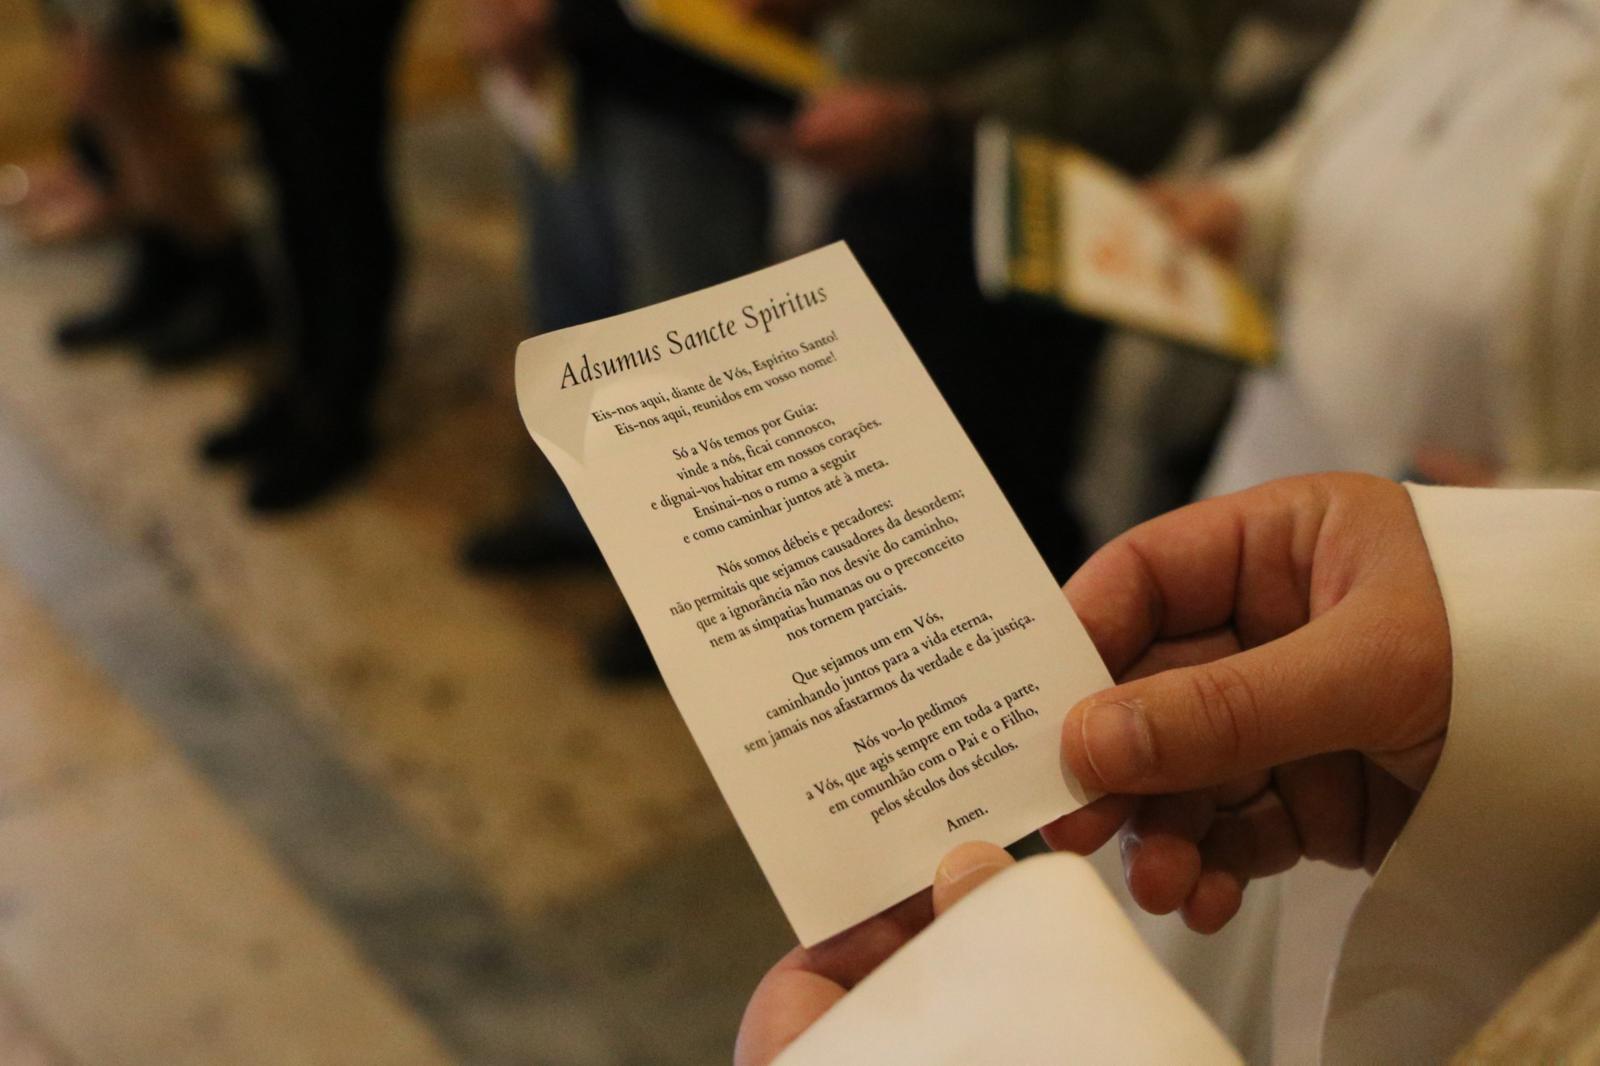 Adsumus Sancte Spiritus
Eis-nos aqui, diante de Vós, Espírito Santo!
Eis-nos aqui, reunidos em vosso nome!
Só a Vós temos por Guia:
vinde a nós, ficai connosco,
e dignai-vos habitar em nossos corações.
Ensinai-nos o rumo a seguir
e como caminhar juntos até à meta.
Nós somos débeis e pecadores:
não permitais que sejamos causadores da desordem;
que a ignorância não nos desvie do caminho,
nem as simpatias humanas ou o preconceito
nos tornem parciais.
Que sejamos um em Vós,
caminhando juntos para a vida eterna,
sem jamais nos afastarmos da verdade e da justiça.
Nós vo-lo pedimos
a Vós, que agis sempre em toda a parte,
em comunhão com o Pai e o Filho,
pelos séculos dos séculos.
Amen.